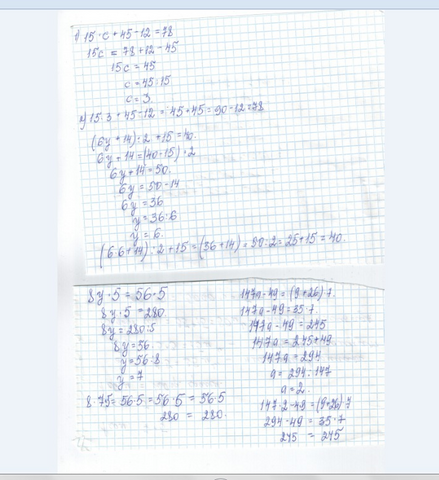 1) 15·c+45-12=78
15c = 78+12-45
15c = 45
c = 45:15
c = 3
15·3+45-12=45+45=90-12=78
(6y+14):2+15=40.
6y+14=(40-15)·2
6y+14=50.
6y=50-14
6y=36
y=36:6
y=6.
(6·6+14):2+15=(36+14)=50:2=25+15=40.
8y·5=56·5
8y·5=280
8y=280:5
8y=56
y=56:8
y=7
8·7·5=56·5=56·5=56·5
280 = 280.
147a-49=(9+26)·7
147a-49=35·7
147a-49=245
147a=245+49
147a=294
a=294:147
a=2.
147·2-49=(9+26)·7
294-49=35·7
245 = 245